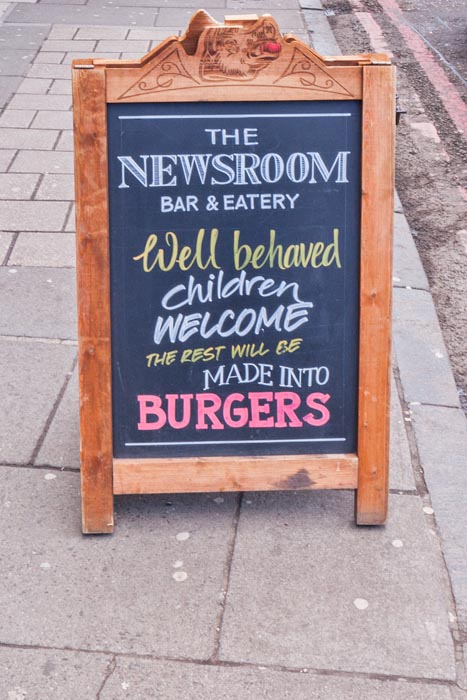 THE
NEWSROOM
BAR & EATERY
Well behaved
children
WELCOME
THE REST WILL BE
MADE INTO
BURGERS